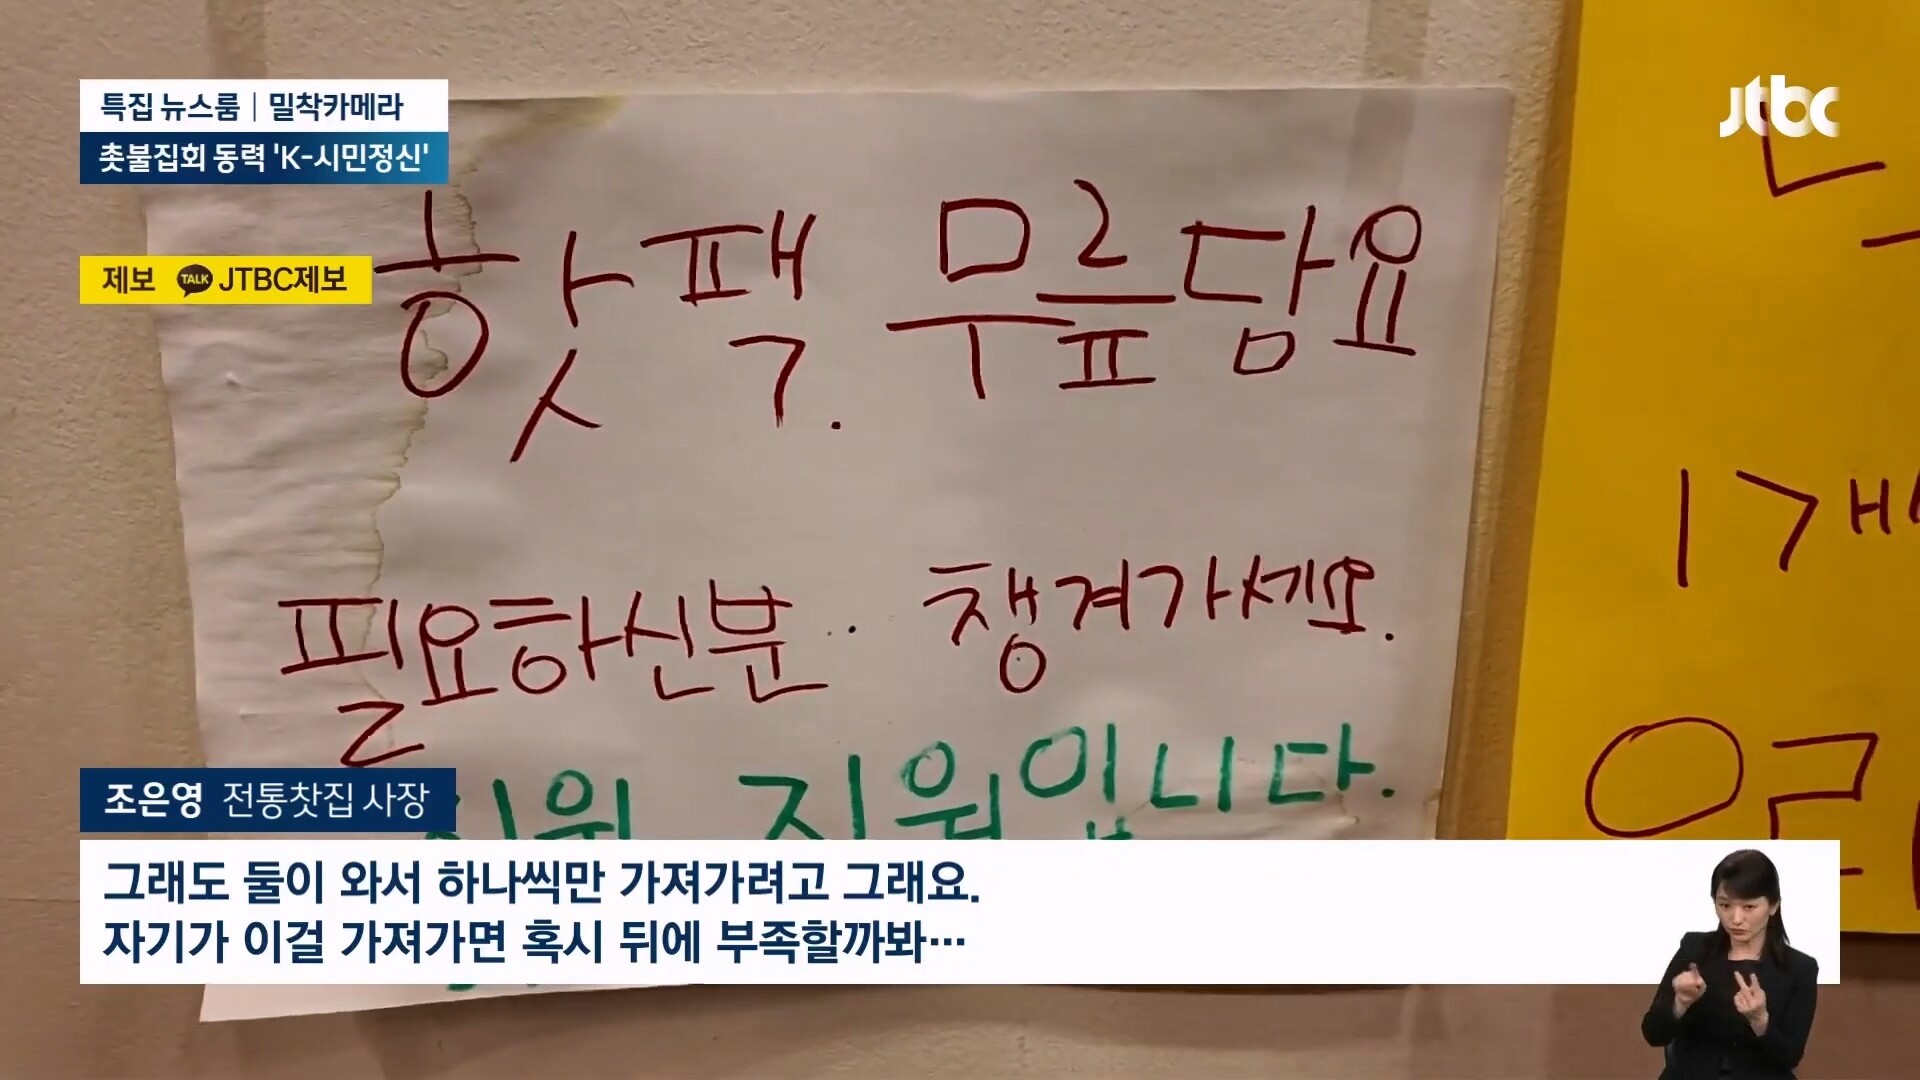 특집 뉴스룸 | 밀착카메라
촛불집회 동력 'K-시민정신'
jtbc
제보 TALK JTBC제보
핫팩. 무릎담요
필요하신분.. 챙겨가세요.
지원입니다.
1개
조은영 전통찻집 사장
그래도 둘이 와서 하나씩만 가져가려고 그래요.
자기가 이걸 가져가면 혹시 뒤에 부족할까봐…